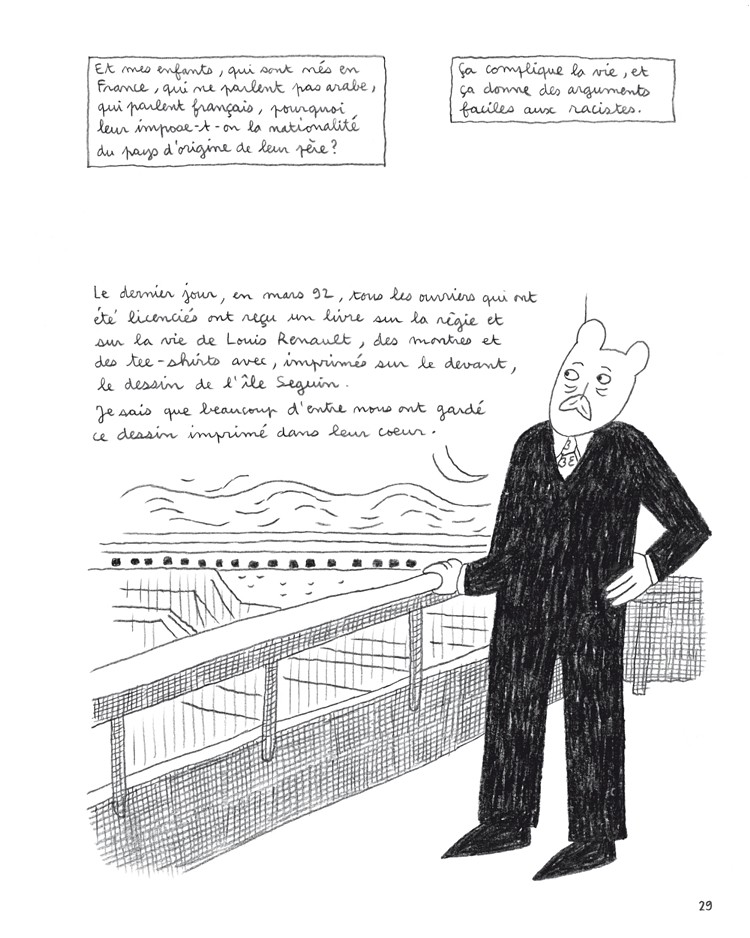 Et mes enfants, qui sont nés en
France, qui ne parlent pas arabe,
qui parlent français, pourquoi
leur impose-t-on la nationalité
du pays d'origine de leur père ?
Ça complique la vie, et
ça donne des arguments
faciles aux racistes.
Le dernier jour, en mars 92, tous les ouvriers qui ont
été licenciés ont reçu un livre sur la régie et
sur la vie de Louis Renault, des montres et
des tee-shirts avec, imprimés sur le devant,
le dessin de l'île Seguin.
Je sais que beaucoup d'entre nous ont gardé
ce dessin imprimé dans leur coeur.
29